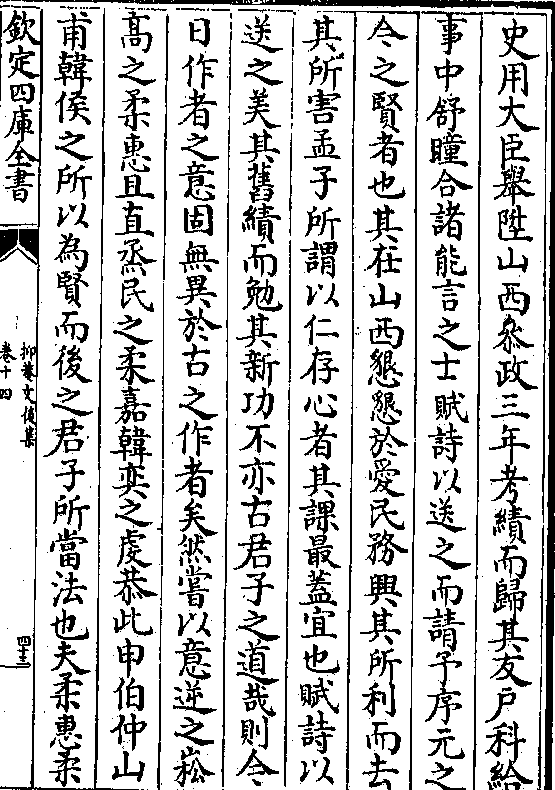 史用大臣舉陞山西叅政三年考績而歸其友户科給
事中舒瞳合諸能言之士賦詩以送之而請予序元之
今之賢者也其在山西懇懇於愛民務興其所利而去
其所害孟子所謂以仁存心者其課最蓋宜也賦詩以
送之美其舊績而勉其新功不亦古君子之道哉則今
日作者之意固無異於古之作者矣然嘗以意逆之崧
髙之柔惠且直烝民之柔嘉韓奕之虔恭此申伯仲山
甫韓侯之所以為賢而後之君子所當法也夫柔惠柔
欽定四庫全書
抑菴文後集
卷十四
四十三